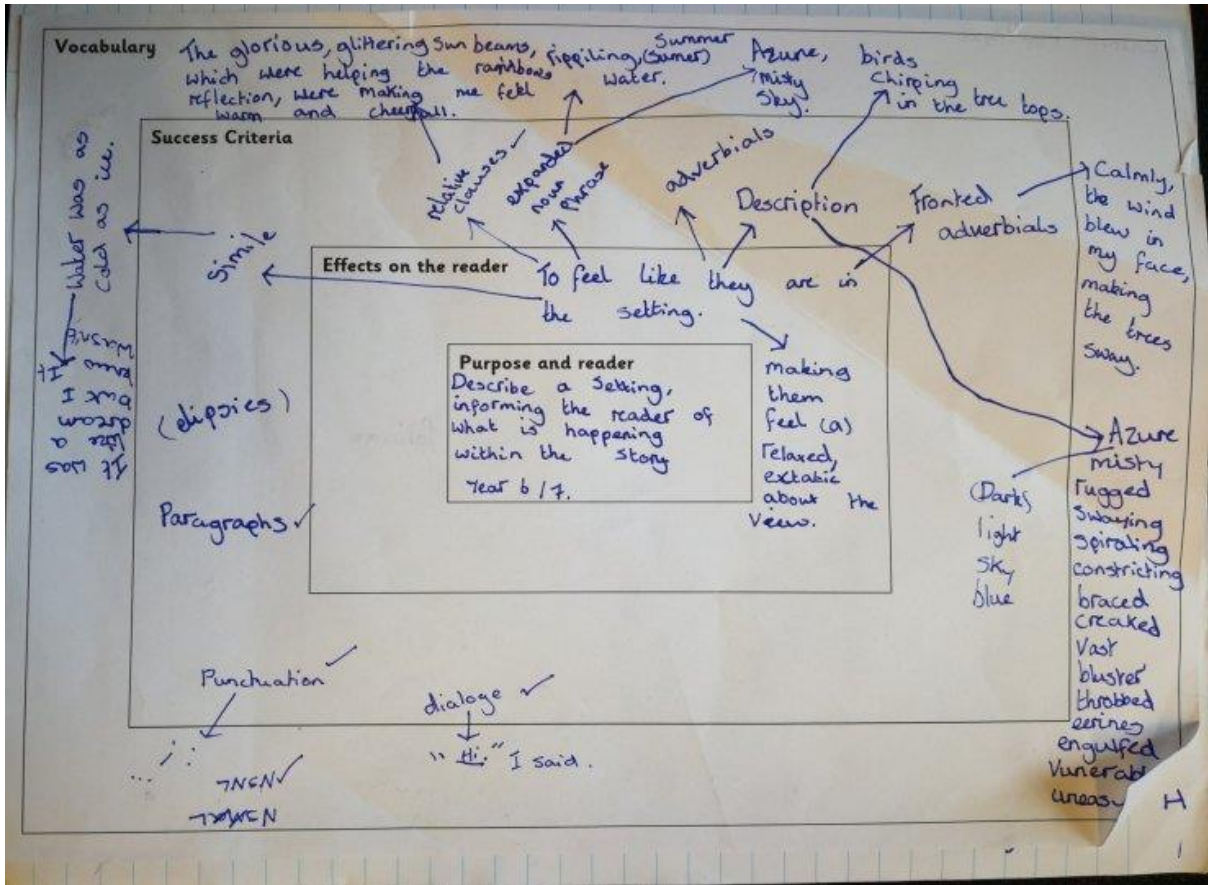 Vocabulary
The glorious, glittering sun beams, rippiling, (sumer) Summer
which were helping the rainbows water.
reflection, were making me feel
warm and cheerfall.
Azure,
misty
sky.
birds
chirping
in the tree tops.
Success Criteria
relative
clauses ✓
expanded
noun
phrase
adverbials
Description
Fronted
adverbials
Calmly,
the wind
blew in
my face,
making
the trees
sway.
Simile
Water was as
cold as ice.
It was
like a
dream
but I
knew
it
wasn't
Effects on the reader
To feel like they are in
the setting.
making
them
feel (a)
relaxed,
extatic
about the
view.
Purpose and reader
Describe a setting,
informing the reader of
what is happening
within the story
Year 6/7.
(elipsies)
Paragraphs ✓
(Dark)
light
sky
blue
Azure
misty
rugged
swaying
spiraling
constricting
braced
creaked
vast
bluster
throbbed
eerines
engulfed
Vunerabl
uneasy
H
Punctuation ✓
... ; :
dialoge ✓
"Hi." I said.